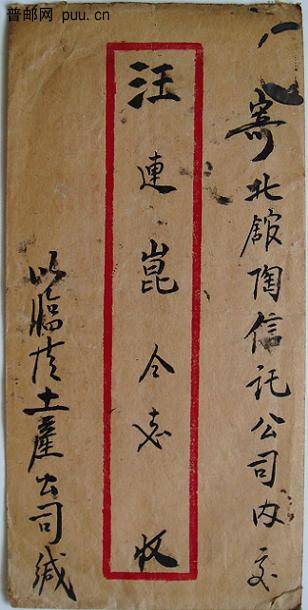 普邮网 puu.cn
寄北舘陶信託公司内交
汪連崑仝志收
以臨清土產公司緘